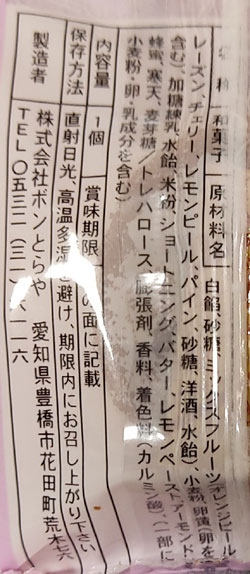 名称 和菓子 原材料名 白餡、砂糖、ミックスフルーツ(オレンジピール、
レーズン、チェリー、レモンピール、パイン、砂糖、洋酒、水飴)、小麦粉、卵黄(卵を
含む)、加糖練乳、水飴、米粉、ショートニング、バター、レモンペースト、アーモンド、
蜂蜜、寒天、麦芽糖/トレハロース、膨張剤、香料、着色料(カルミン酸)、(一部に
小麦粉・卵・乳成分を含む)
内容量 1個 賞味期限 の面に記載
保存方法 直射日光、高温多湿を避け、期限内にお召し上がり下さい
製造者 株式会社ボンとらや 愛知県豊橋市花田町荒木七六
TEL〇五三二(三一)八一一六